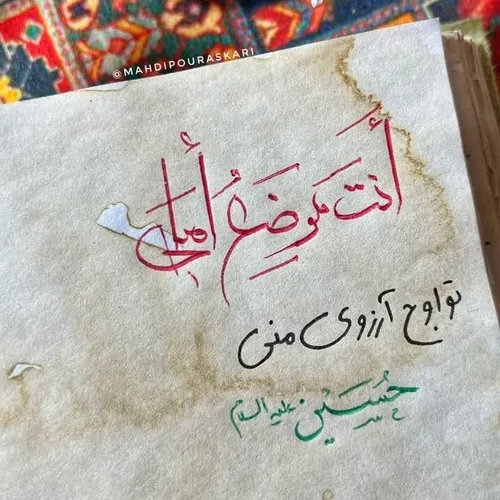 @MAHDIPOURASKARI
أنتَ مَوضِعُ أملي
تو اوج آرزوی منی
حُسَین علیه السلام